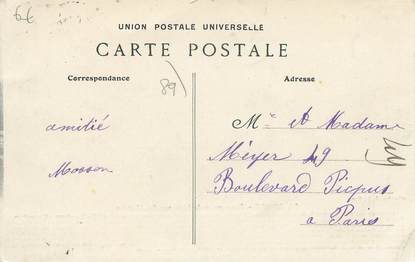 6€
UNION POSTALE UNIVERSELLE
CARTE POSTALE
Correspondance
89
Adresse
amitié
Mosson
Mr et Madame
Méyer 49
Boulevard Picpus
a Paris